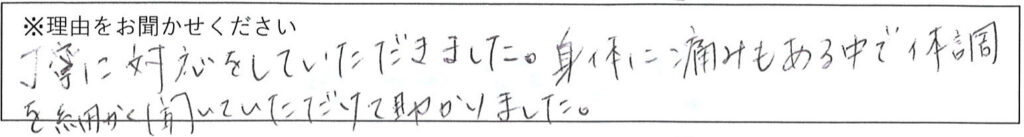 ※理由をお聞かせください
丁寧に対応をしていただきました。身体に痛みもある中で体調
を細かく聞いていただけて助かりました。